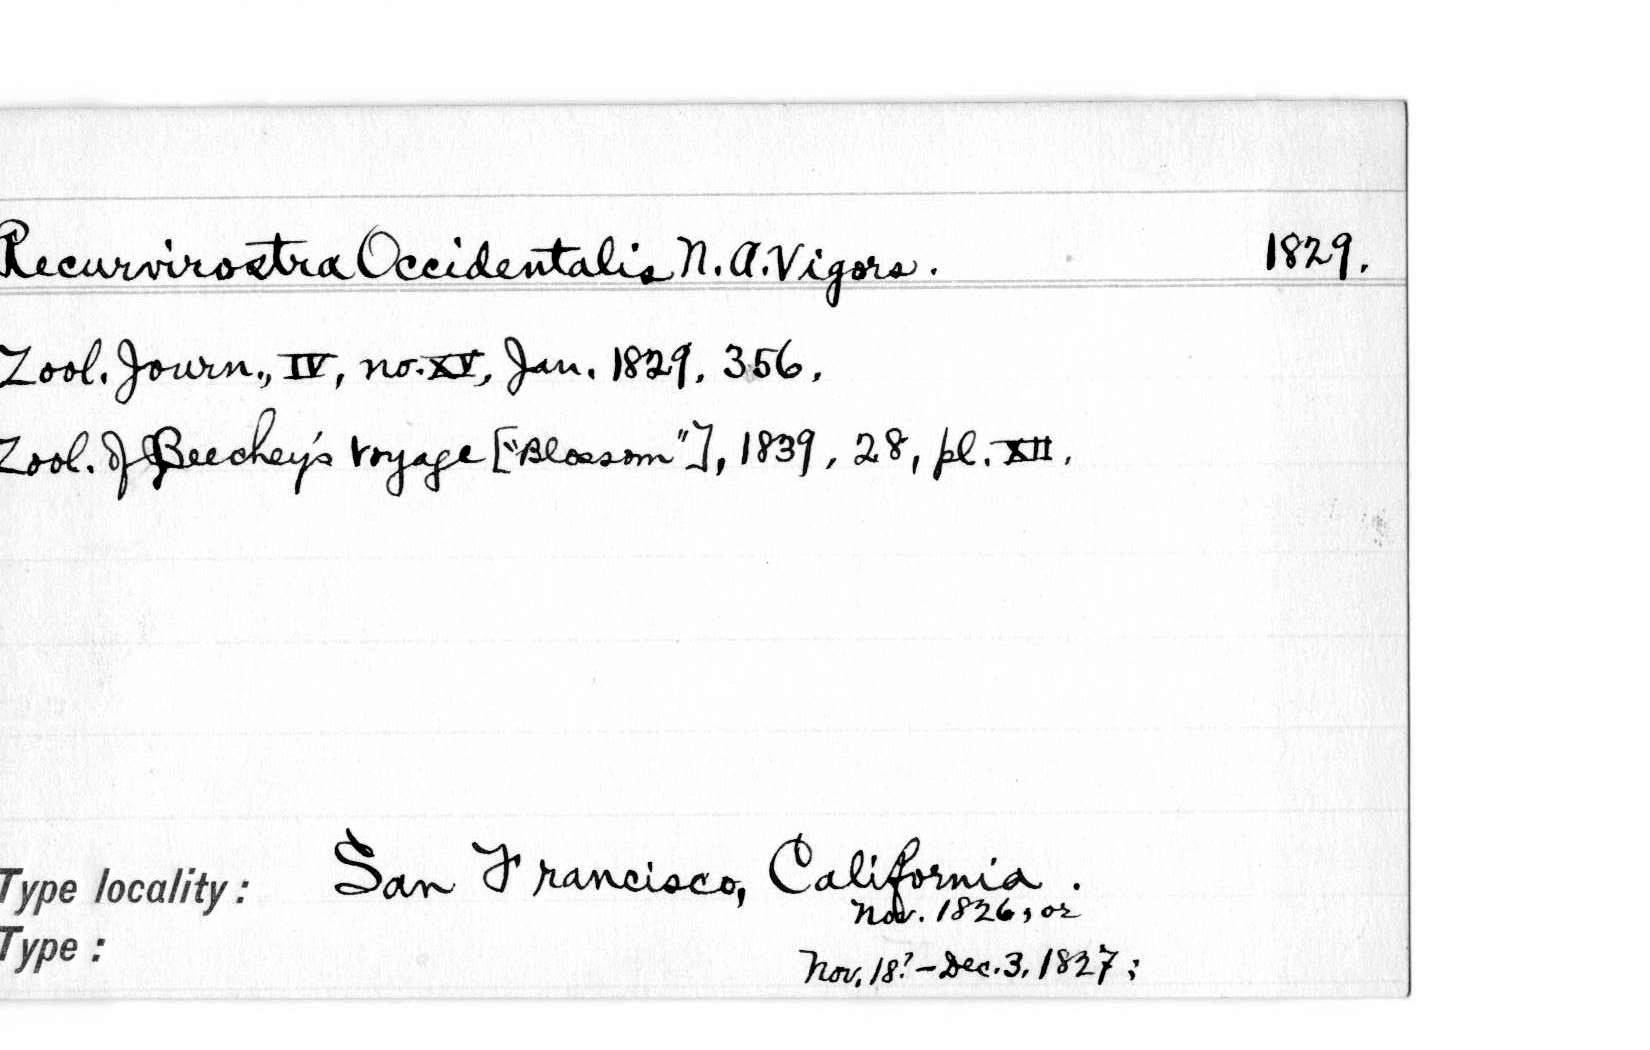 Recurvirostra Occidentalis N.A.Vigors. 1829.
Zool. Journ., IV, no. XV, Jan. 1829, 356,
Zool. of Beechey's voyage ["Blossom"], 1839, 28, pl. XII.
Type locality: San Francisco, California.
Nov. 1826, or
Type:
Nov. 18? - Dec. 3, 1827;